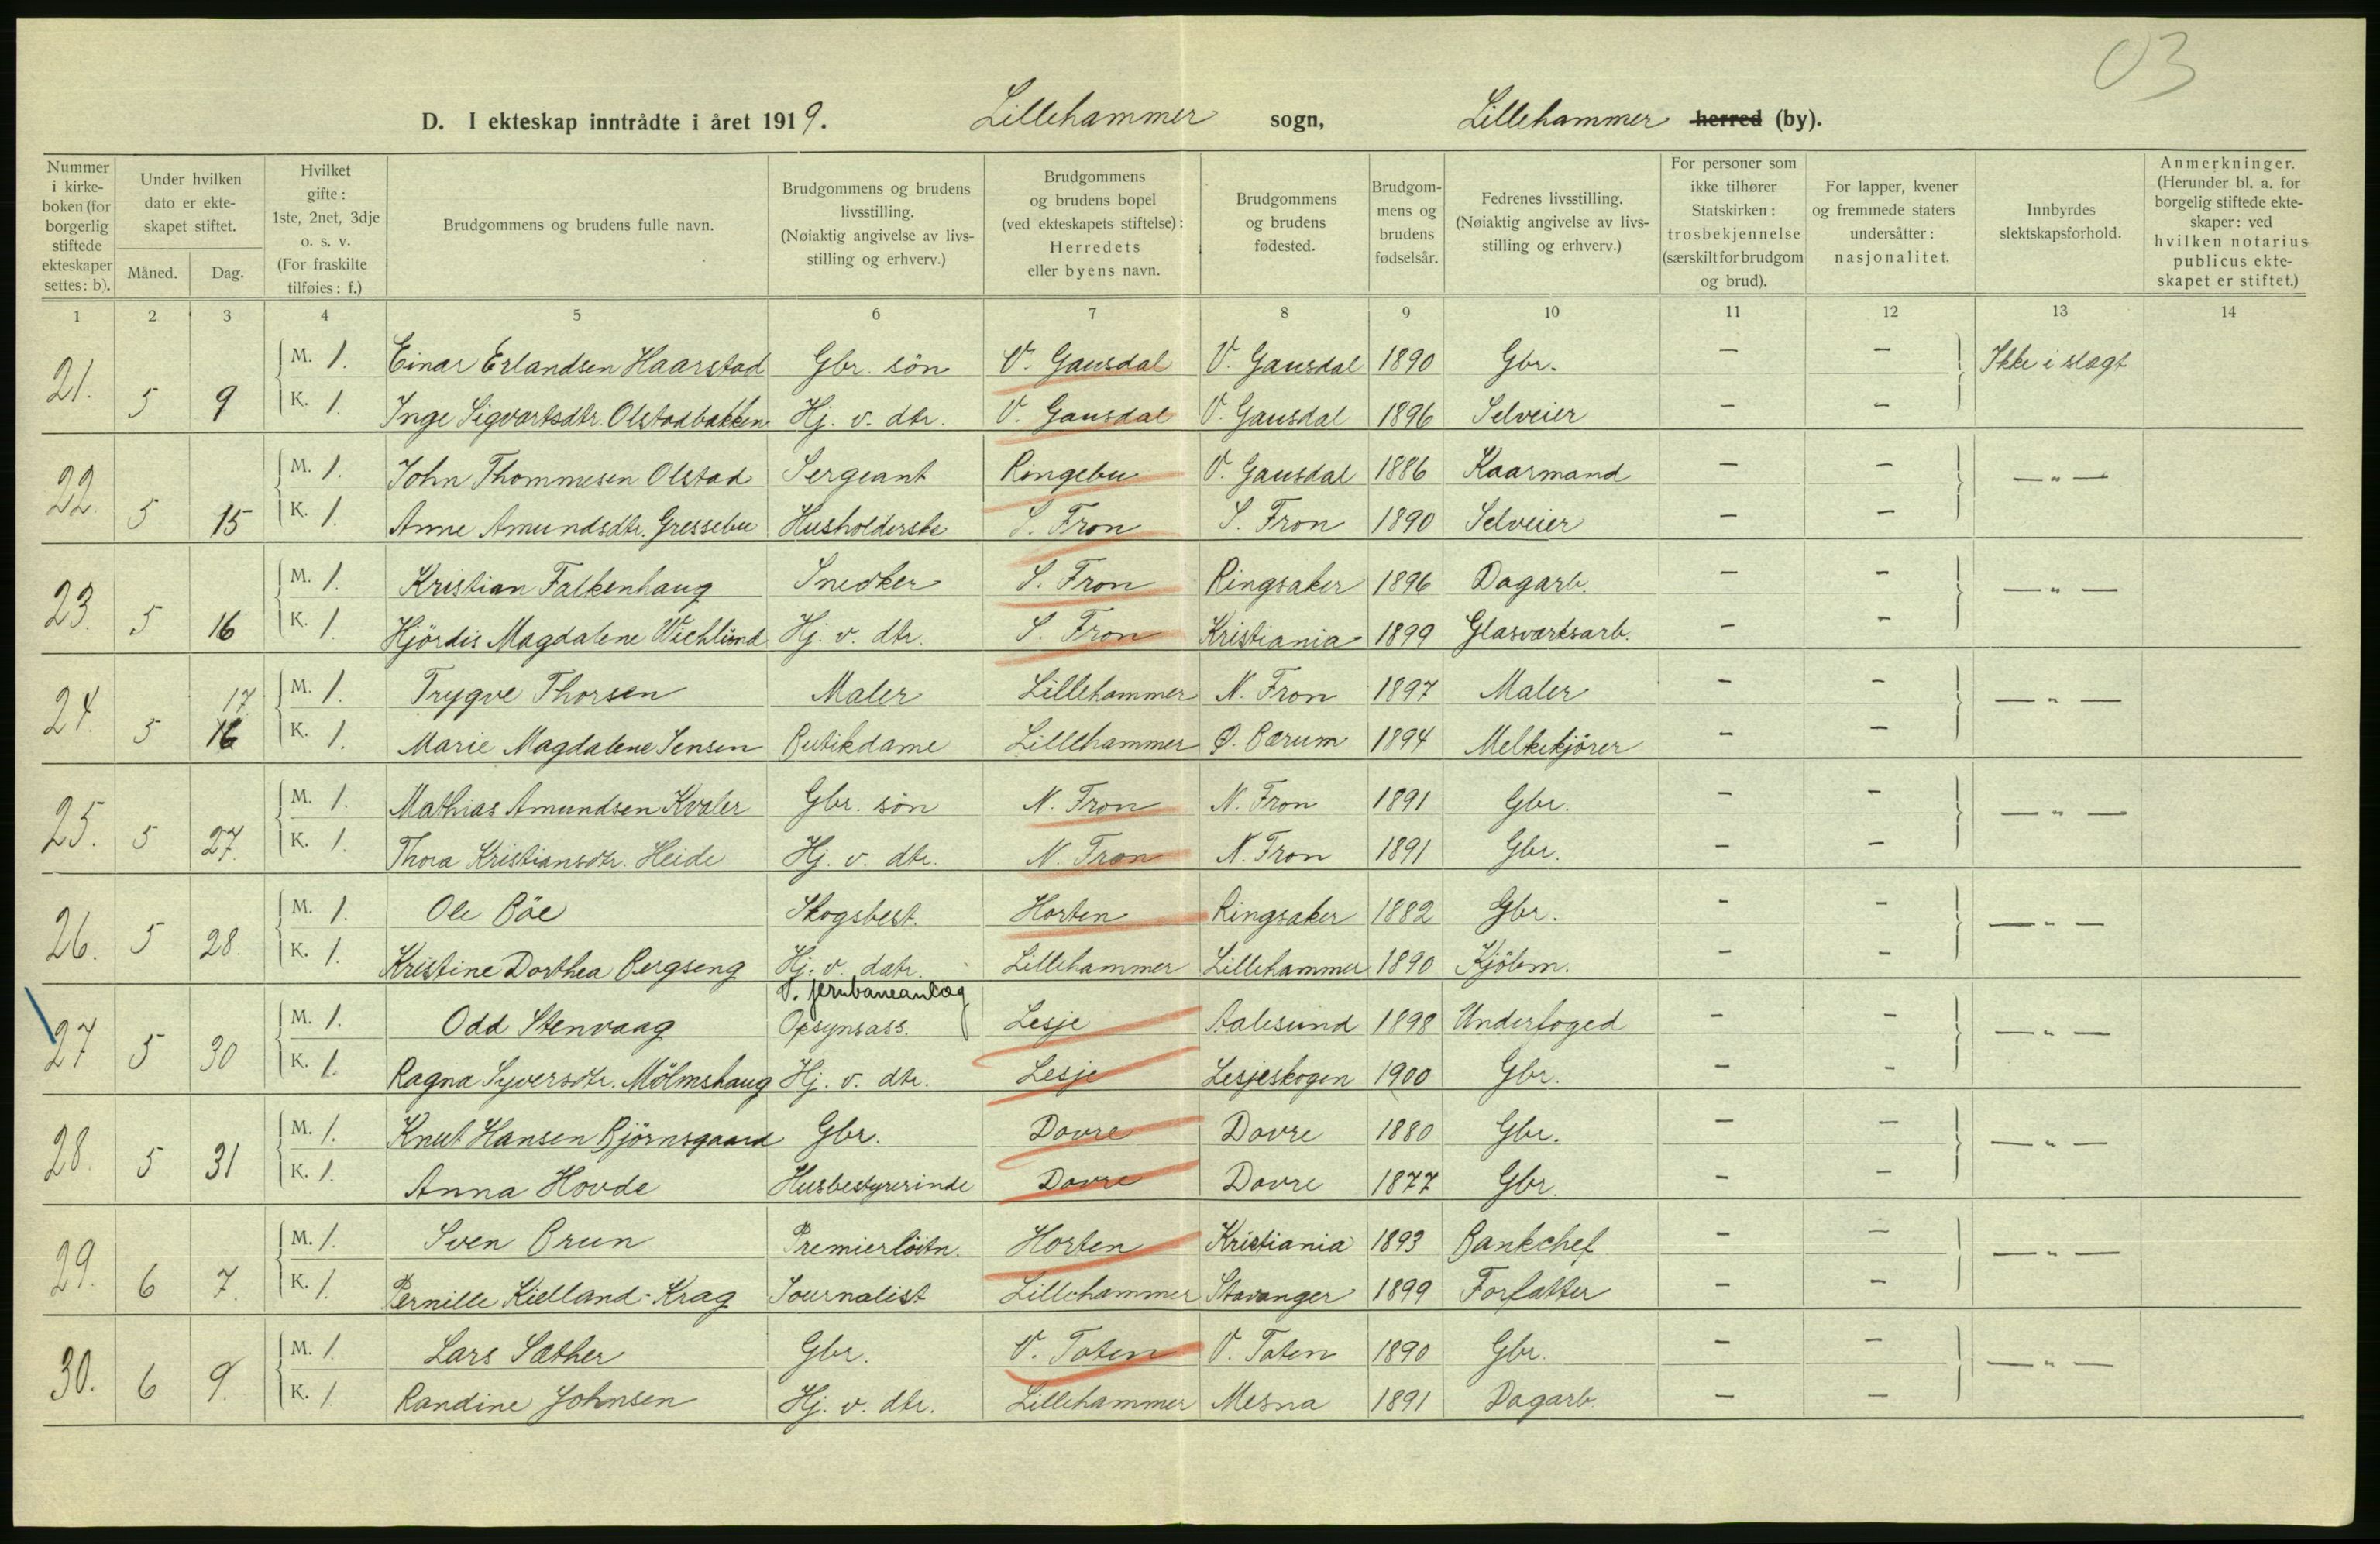 03
D. I ekteskap inntrådte i året 1919. Lillehammer sogn, Lillehammer herred (by).
Nummer i kirkeboken (for borgerlig stiftede ekteskaper settes: b).
Under hvilken dato er ekteskapet stiftet.
Måned. Dag.
Hvilket gifte: 1ste, 2net, 3dje o. s. v. (For fraskilte tilføies: f.)
Brudgommens og brudens fulle navn.
Brudgommens og brudens livsstilling. (Nøiaktig angivelse av livsstilling og erhverv.)
Brudgommens og brudens bopel (ved ekteskapets stiftelse): Herredets eller byens navn.
Brudgommens og brudens fødested.
Brudgommens og brudens fødselsår.
Fedrenes livsstilling. (Nøiaktig angivelse av livsstilling og erhverv.)
For personer som ikke tilhører Statskirken: trosbekjennelse (særskilt for brudgom og brud).
For lapper, kvener og fremmede staters undersåtter: nasjonalitet.
Innbyrdes slektskapsforhold.
Anmerkninger. (Herunder bl. a. for borgelig stiftede ekteskaper: ved hvilken notarius publicus ekteskapet er stiftet.)
1 2 3 4 5 6 7 8 9 10 11 12 13 14
21. 5 9 M. 1. Einar Erlandsen Haarstad Gbr. søn V. Gausdal V. Gausdal 1890 Gbr. — — Ikke i slægt
K. 1. Inge Sigvartsdtr. Olstadbakken Hj. v. dtr. V. Gausdal V. Gausdal 1896 Selveier — —
22. 5 15 M. 1. John Thommesen Olstad Sergeant Ringebu V. Gausdal 1886 Kaarmand — — — " —
K. 1. Anne Amundsdtr. Gressebu Husholderske S. Fron S. Fron 1890 Selveier — —
23. 5 16 M. 1. Kristian Falkenhaug Snedker S. Fron Ringsaker 1896 Dagarb. — — — " —
K. 1. Hjördis Magdalene Wichlund Hj. v. dtr. S. Fron Kristiania 1899 Glasværksarb. — —
24. 5 17. 16 M. 1. Trygve Thorsen Maler Lillehammer N. Fron 1897 Maler — — — " —
K. 1. Marie Magdalene Jensen Butikdame Lillehammer Ø. Bærum 1894 Melkekjörer — —
25. 5 27. M. 1. Mathias Amundsen Kvaler Gbr. søn N. Fron N. Fron 1891 Gbr. — — — " —
K. 1. Thora Kristiansdtr. Heide Hj. v. dtr. N. Fron N. Fron 1891 Gbr. — —
26. 5 28. M. 1. Ole Böe Skogsbest. Horten Ringsaker 1882 Gbr. — — — " —
K. 1. Kristine Dorthea Bergseng Hj. v. datr. Lillehammer Lillehammer 1890 Kjöbm. — —
V. jernbaneanlæg
27 5 30 M. 1. Odd Stenvaag Opsynsass. Lesje Aalesund 1898 Underfoged — — — " —
K. 1. Ragna Syversdtr. Mölmshaug Hj. v. dtr. Lesje Lesjeskogen 1900 Gbr. — —
28. 5 31 M. 1. Knut Hansen Björnsgaard Gbr. Dovre Dovre 1880 Gbr. — — — " —
K. 1. Anna Hovde Husbestyrerinde Dovre Dovre 1877 Gbr. — —
29. 6 7. M. 1. Sven Brun Premierlöitn. Horten Kristiania 1893 Bankchef — — — " —
K. 1. Pernille Kielland-Krag Journalist Lillehammer Stavanger 1899 Forfatter — —
30. 6 9. M. 1. Lars Sæther Gbr. V. Toten V. Toten 1890 Gbr. — — — " —
K. 1 Randine Johnsen Hj. v. dtr. Lillehammer Mesna 1891 Dagarb — —